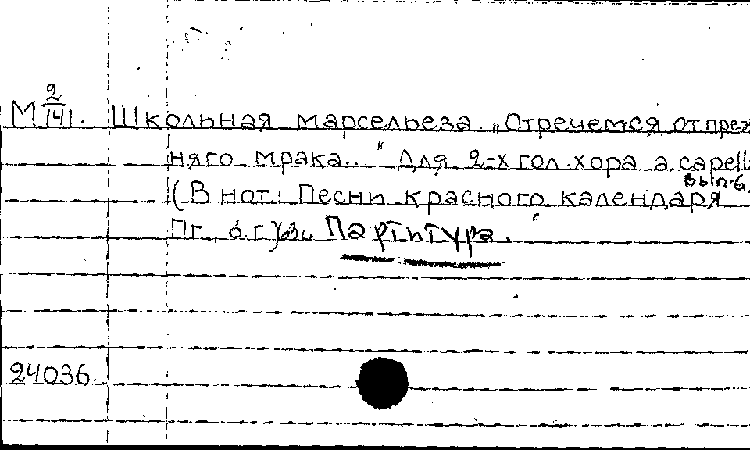 М 9/141. Школьная марсельеза „Отречемся от преж
няго мрака.." Для 2-х гол. хора a capell
вып-6.
(В нот: Песни красного календаря
Пг., б.г.) Партитура.
24036